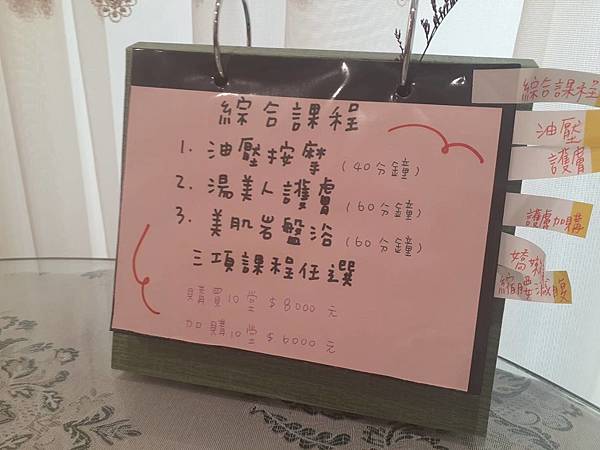 綜合課程
1. 油壓按摩 (40分鐘)
2. 湯美人護膚 (60分鐘)
3. 美肌岩盤浴 (60分鐘)
三項課程任選
購買10堂 $8000元
加購10堂 $6000元
綜合課程
油壓
護膚
護膚加購
縮腰減腹